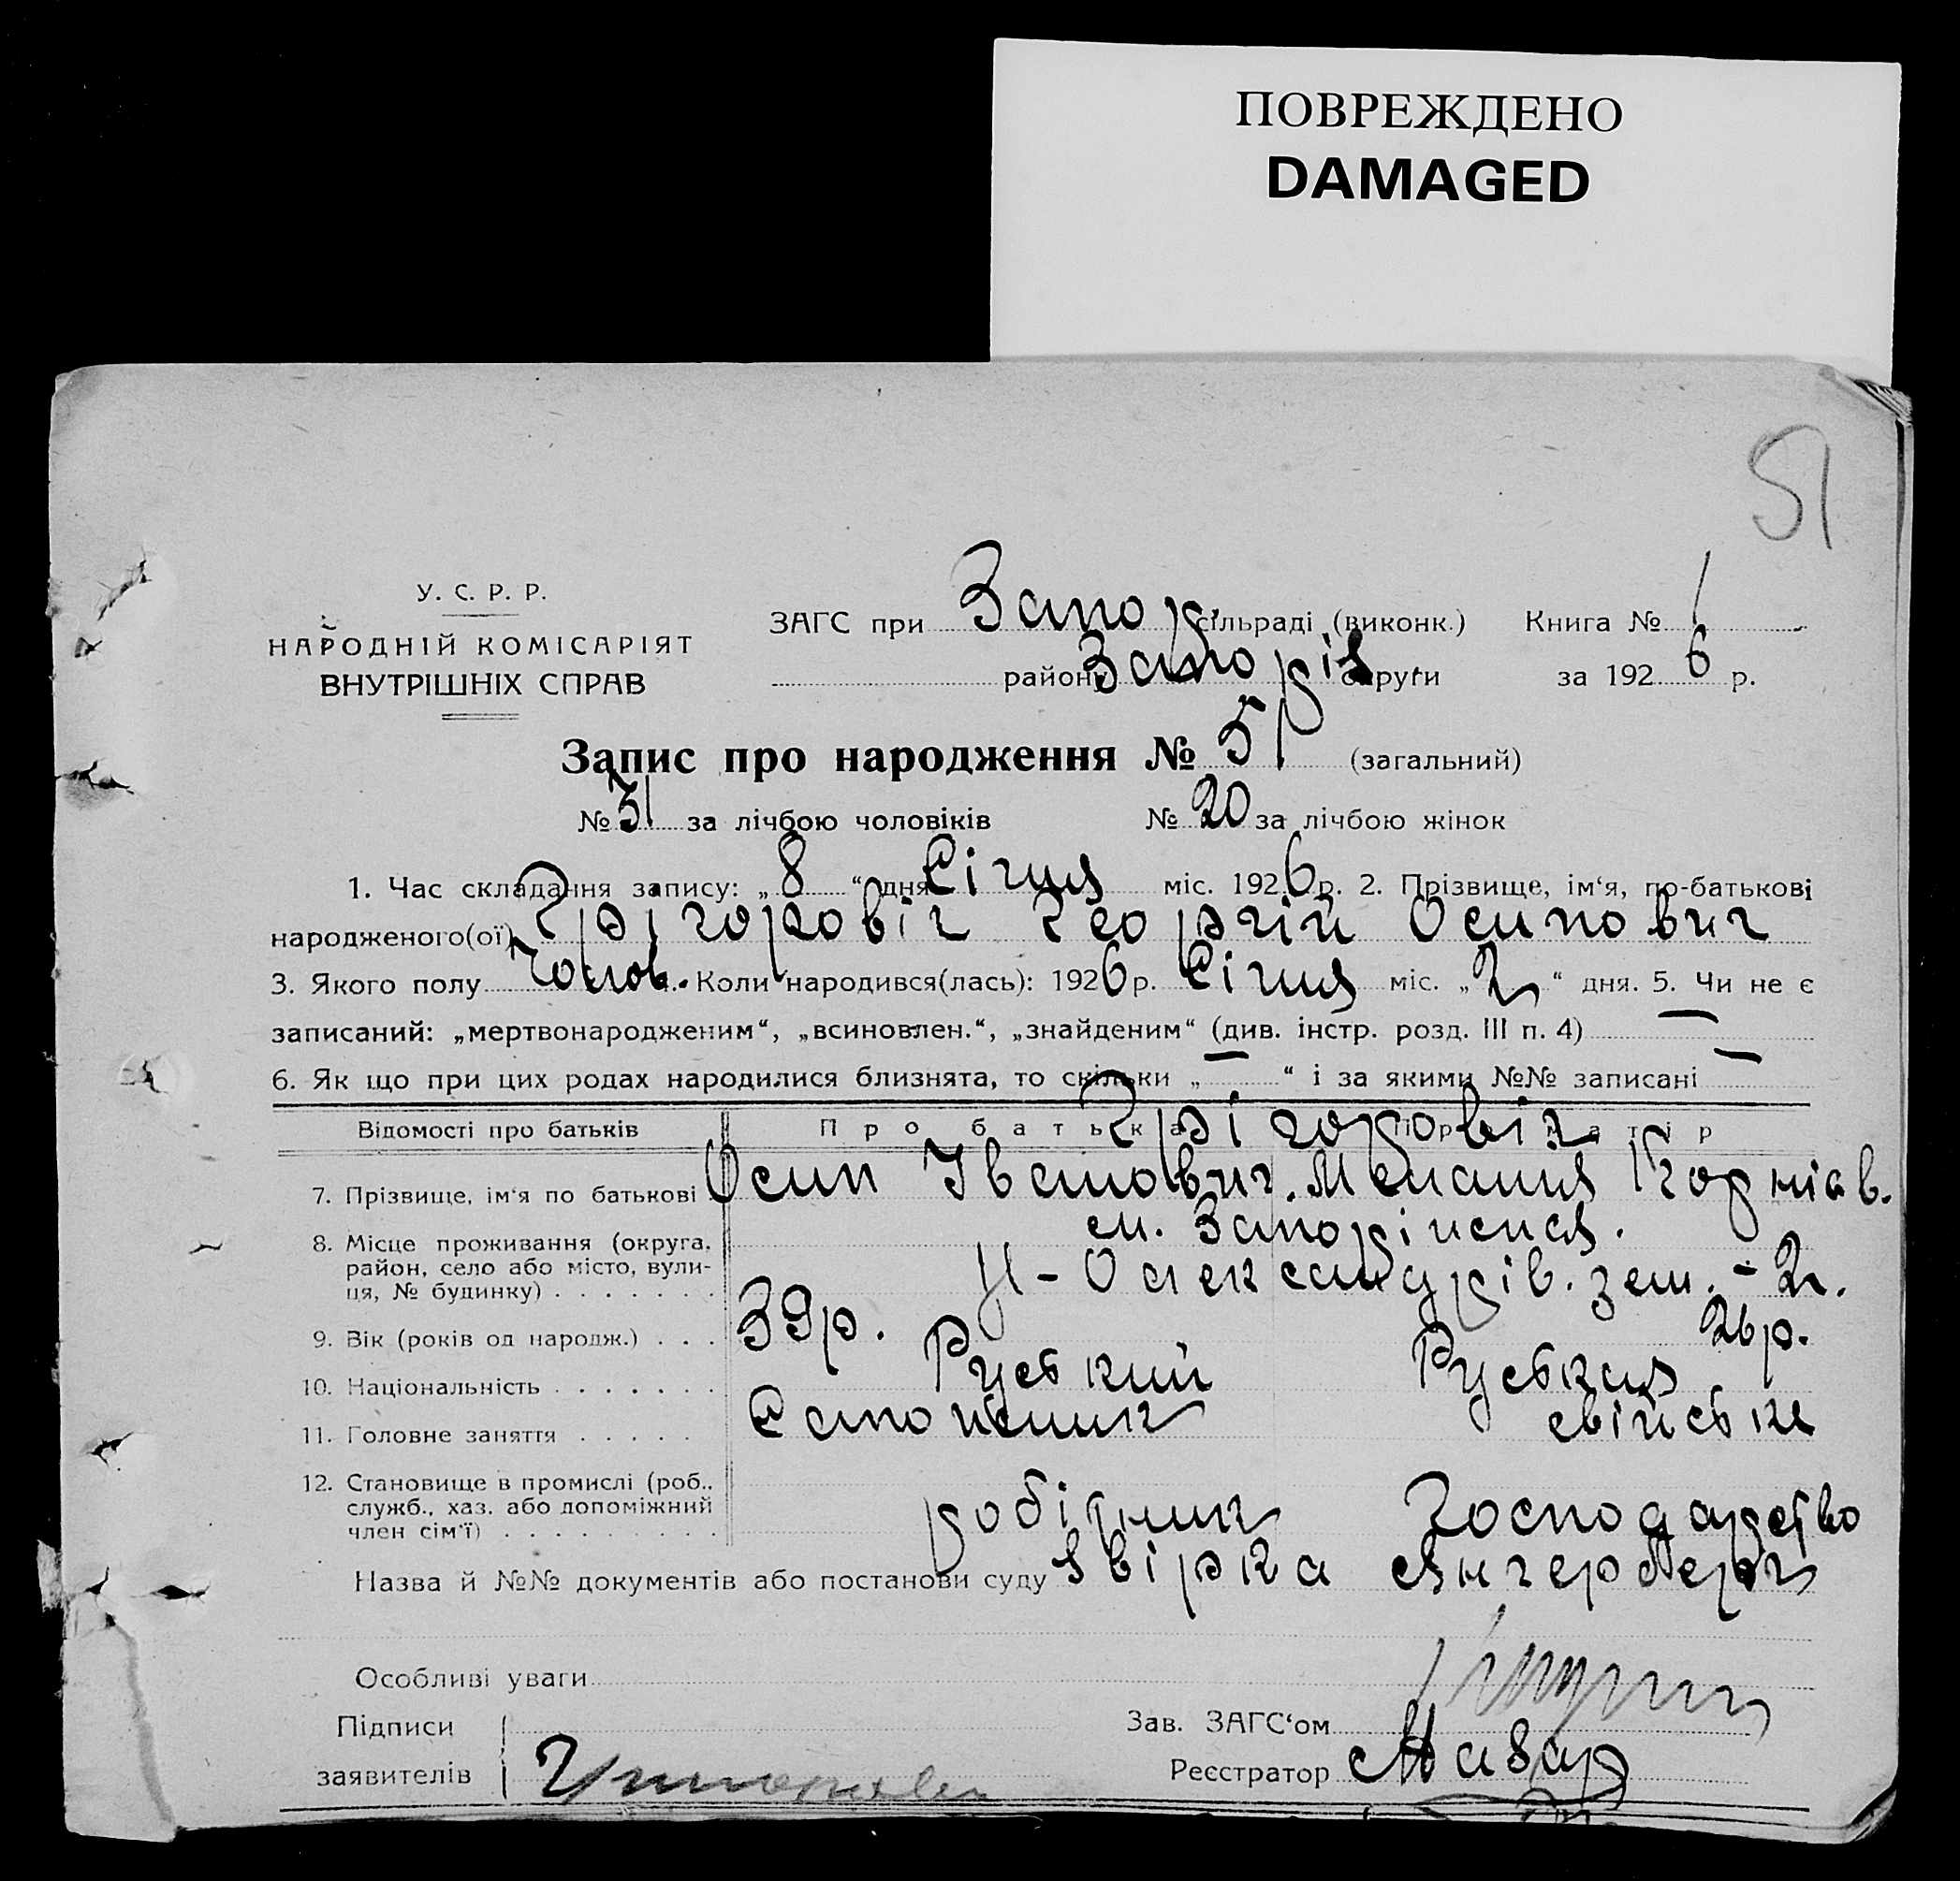 ПОВРЕЖДЕНО
DAMAGED
51
У. С. Р. Р.
НАРОДНІЙ КОМІСАРІЯТ
ВНУТРІШНІХ СПРАВ
ЗАГС при Запор. сільраді (виконк.) Книга № 1
району Запоріз округи за 1926 р.
Запис про народження № 51 (загальний)
№ 31 за лічбою чоловіків № 20 за лічбою жінок
1. Час складання запису: „8“ дня Січня міс. 1926 р. 2. Прізвище, ім‘я, по-батькові
народженого(ої) Грігоровіч Георгій Осипович
3. Якого полу Чолов. Коли народився(лась): 1926 р. Січня міс. „2“ дня. 5. Чи не є
записаний: „мертвонародженим“, „всиновлен.“, „знайденим“ (див. інстр. розд. III п. 4) —
6. Як що при цих родах народилися близнята, то скільки „—“ і за якими №№ записані —
Відомості про батьків Про батька Про матір
Грігоровіч
7. Прізвище, ім‘я по батькові Осип Іванович. Меланія Корніїв.
8. Місце проживання (округа, район, село або місто, вулиця, № будинку)
ст. Запоріжжя.
Н-Олександрів. зем. - 2.
9. Вік (років од народж.) 39р. 26р.
10. Національність Руський Руськая
11. Головне заняття Сапожник свійське
12. Становище в промислі (роб., служб., хаз. або допоміжний член сім‘ї) робітник Господарство
Назва й №№ документів або постанови суду звірка
Особливі уваги
Підписи
заявителів
Зав. ЗАГС‘ом
Реєстратор Назар